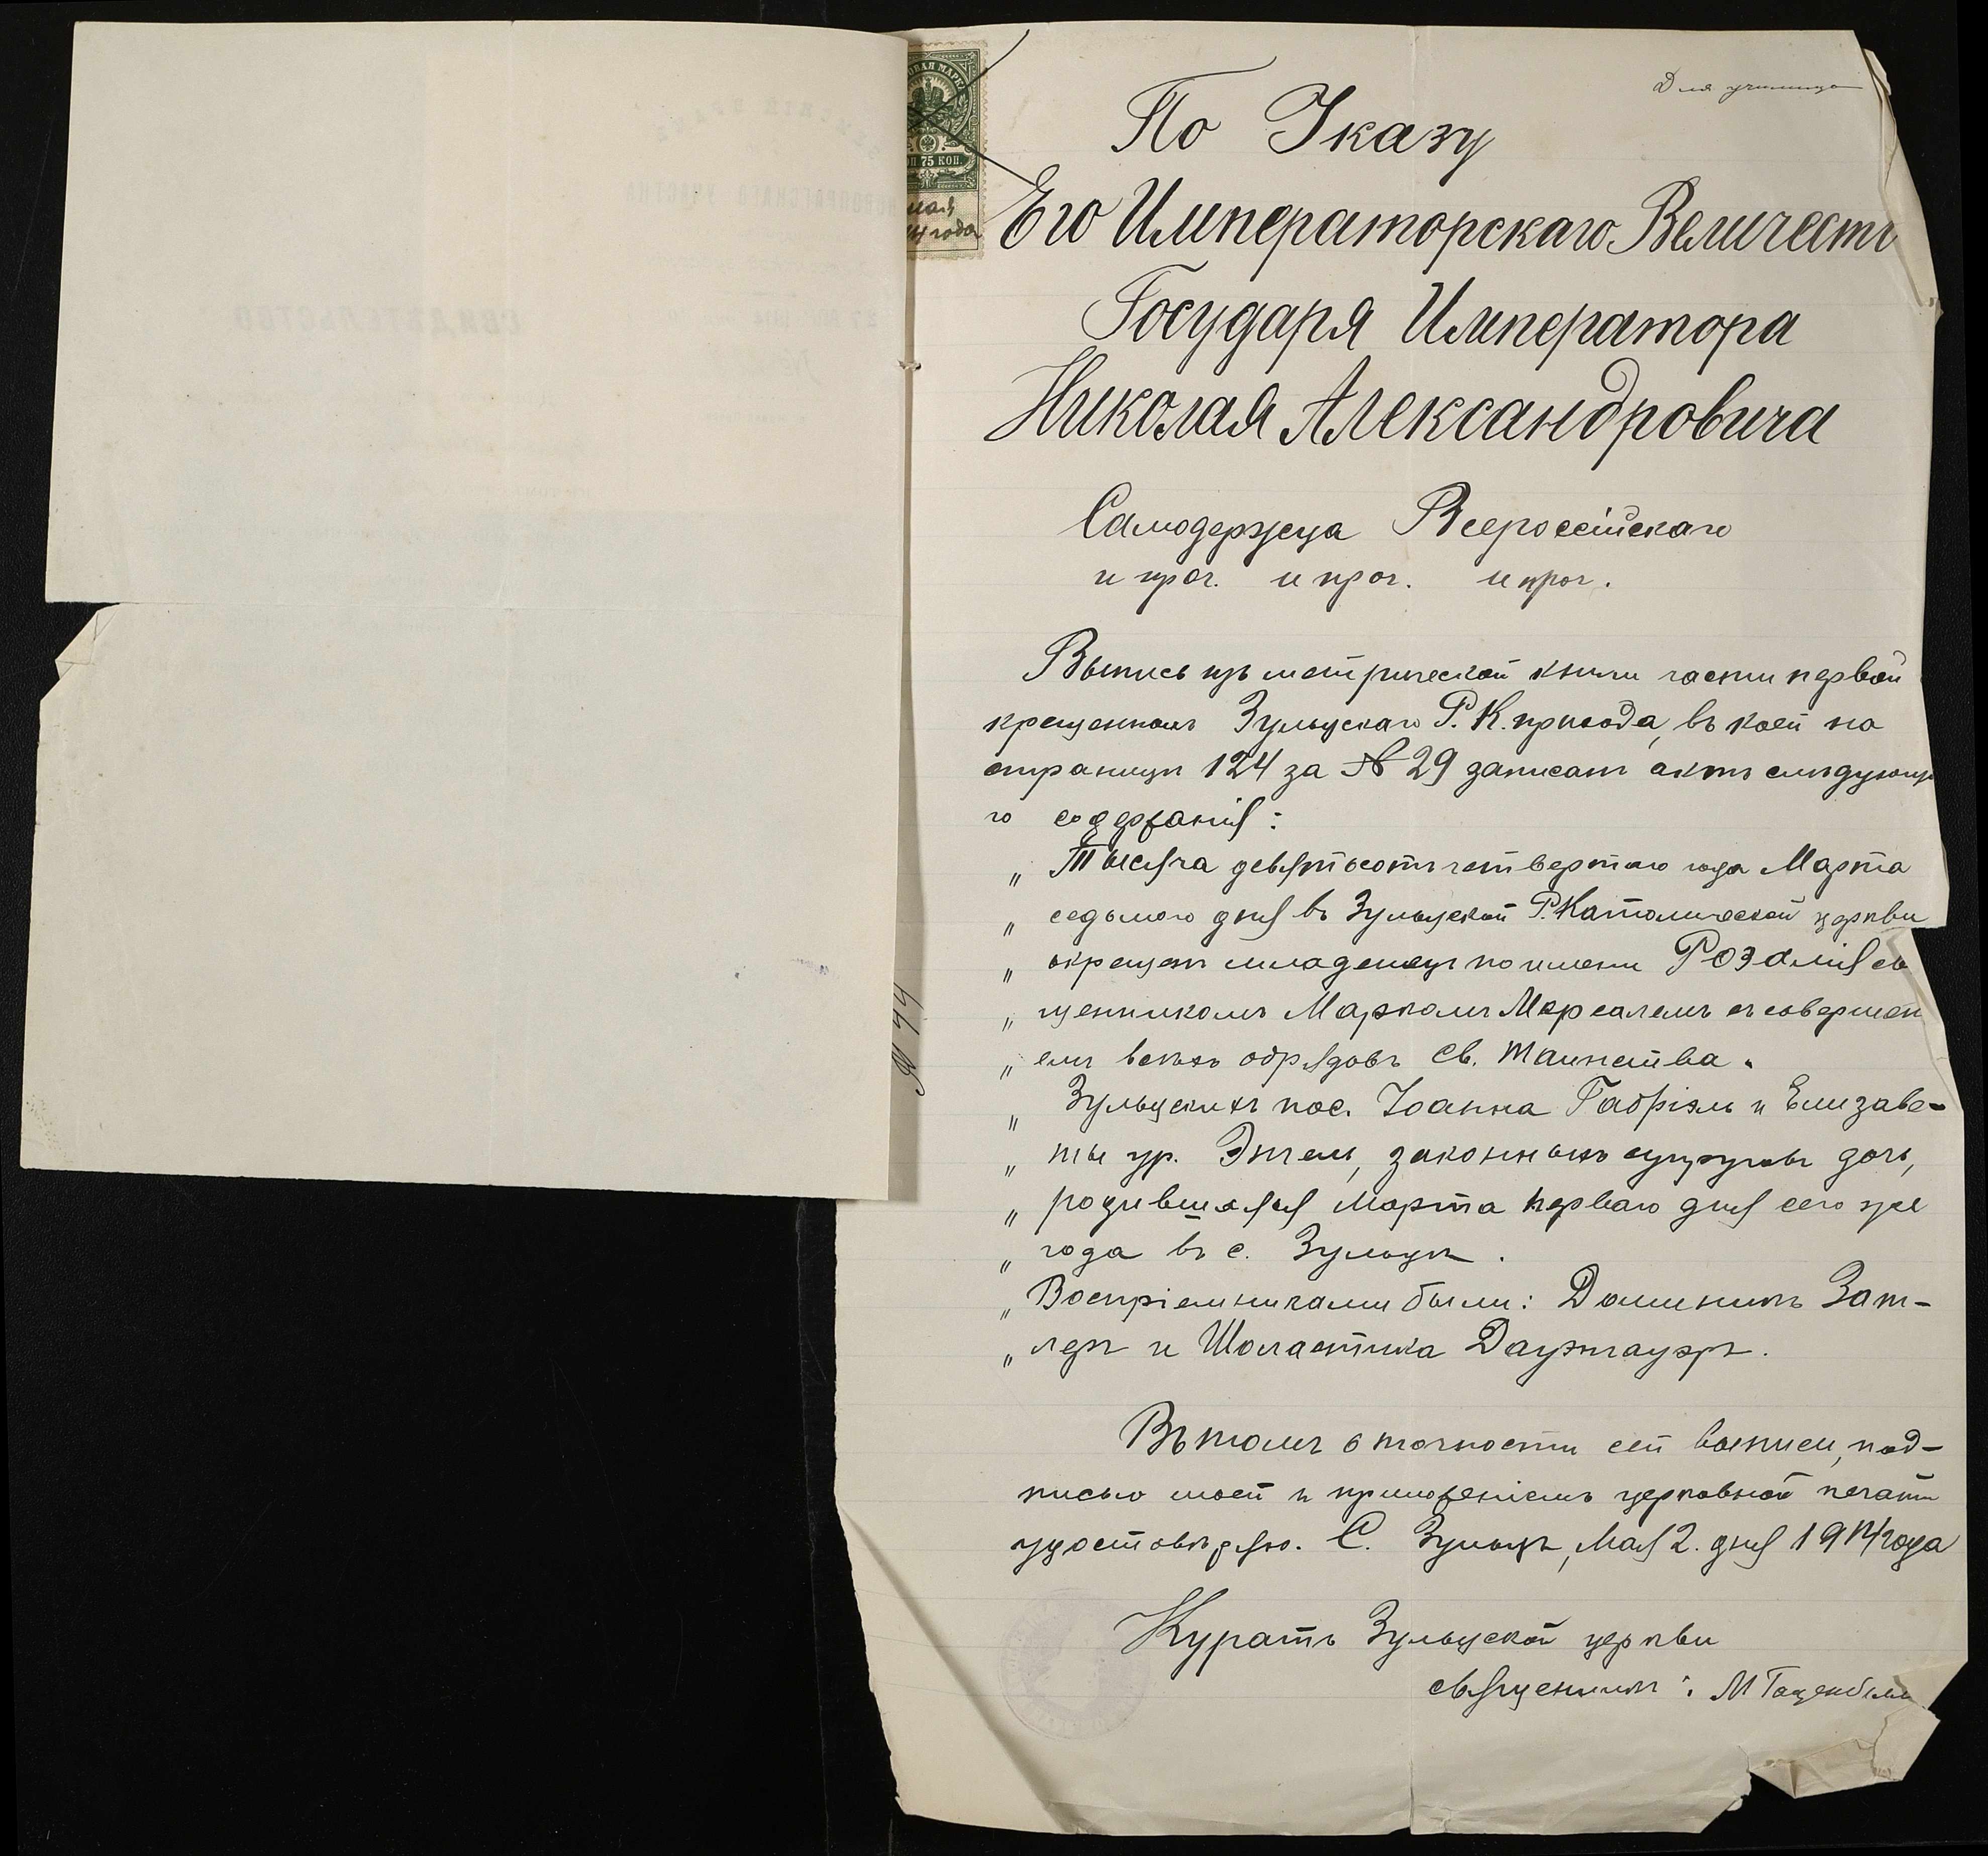 Для училища
По Указу
Его Императорскаго Величест
Государя Императора
Николая Александровича
Самодержца Всероссійскаго
и проч. и проч. и проч.
ОВАЯ МАРК
75 КОП.
мая
года
Выпись изъ метрической книги части первой
крещенныхъ Зульцскаго Р. К. прихода, въ коей на
страницѣ 124 за № 29 записанъ актъ слѣдующа
го содержанія:
„ Тысяча девятьсотъ четвертаго года Марта
„ седьмого дня въ Зульцской Р. Католической церкви
„ окрещенъ младенецъ по имени Розалія свя
„ щенникомъ Маркомъ съ совершен
„ емъ всѣхъ обрядовъ Св. Таинства.
„ Зульцскихъ пос. Іоанна Габріэль и Елизаве-
„ ты ур. законныхъ супруговъ дочь,
„ родившаяся Марта перваго дня сего же
„ года въ с. Зульцѣ.
„ Воспріемниками были: Доминикъ Зат-
„ леръ и Шоластика
Въ томъ о точности сей выписи, под-
писью моей и приложеніемъ церковной печати
удостовѣряю. С. Зульцъ, Мая 2. дня 1914 года
Куратъ Зульцской церкви
священникъ: М
№ 44
СВИДѢТЕЛЬСТВО